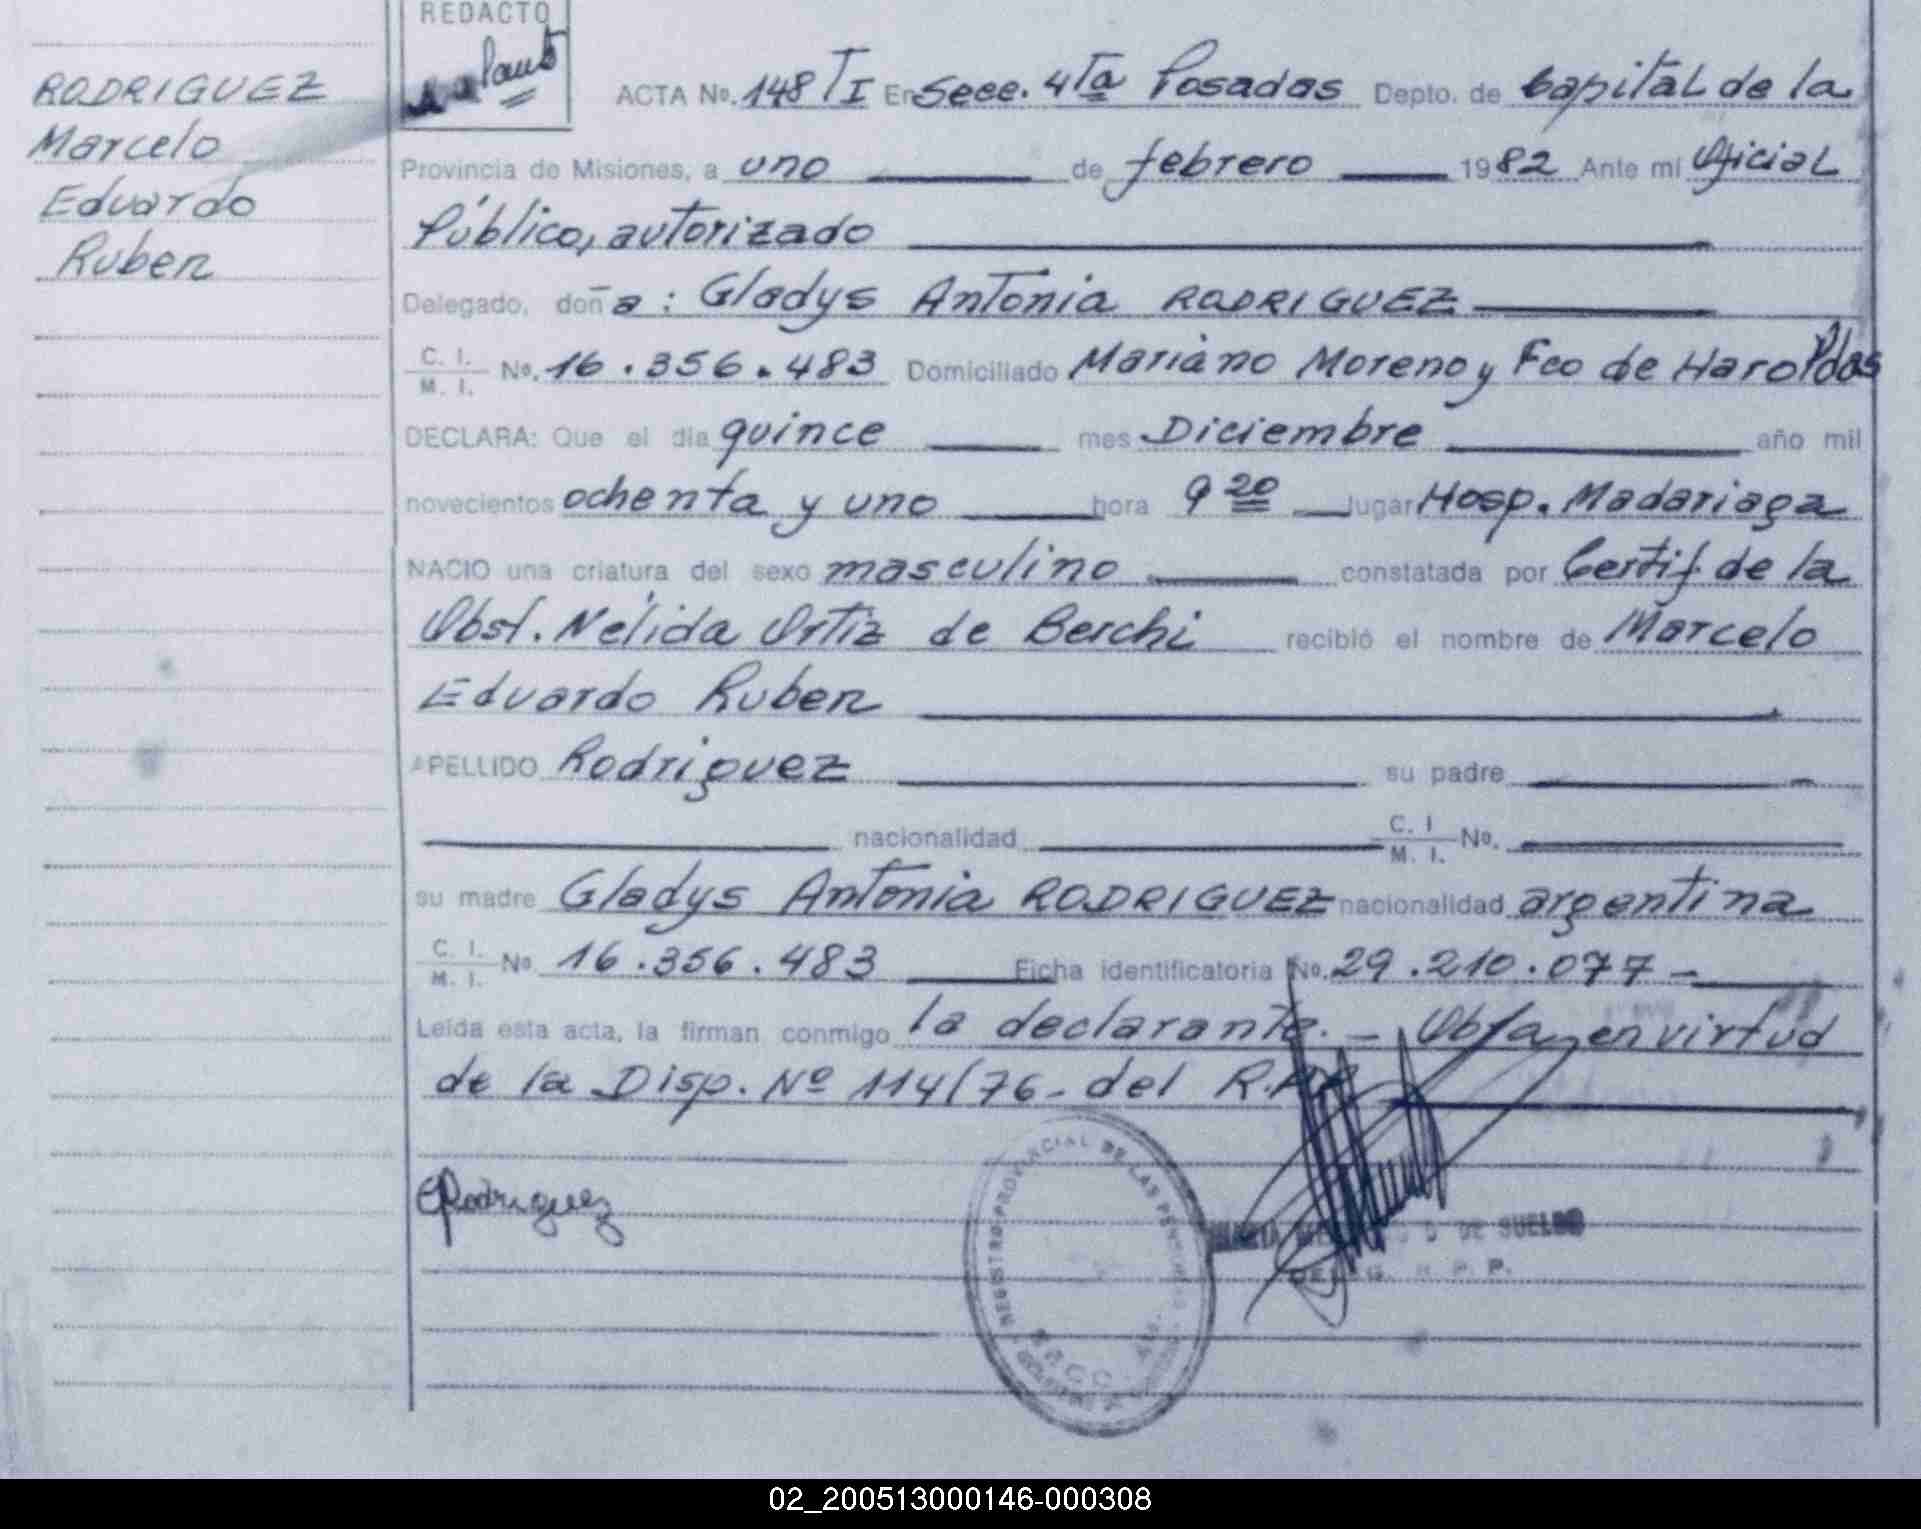 REDACTO
RODRIGUEZ
Marcelo
Eduardo
Ruben
ACTA No. 148 TI En Secc. 4Ta Posadas Depto. de Capital de la
Provincia de Misiones, a uno de febrero 1982 Ante mi Oficial
Público, autorizado
Delegado, doña: Gladys Antonia RODRIGUEZ
C. I. / M. I. No. 16.356.483 Domiciliado Mariano Moreno y Fco de Haro Pdas
DECLARA: Que el día quince mes Diciembre año mil
novecientos ochenta y uno hora 9 20 lugar Hosp. Madariaga
NACIO una criatura del sexo masculino constatada por Certif de la
Obst. Nélida Ortiz de Berchi recibió el nombre de Marcelo
Eduardo Ruben
APELLIDO Rodriguez su padre
nacionalidad C. I / M. I. No.
su madre Gladys Antonia RODRIGUEZ nacionalidad argentina
C. I. / M. I. No 16.356.483 Ficha identificatoria No. 29.210.077 -
Leída esta acta, la firman conmigo la declarante. - en virtud
de la Disp. Nº 114/76 - del
Rodriguez
REGISTRO PROVINCIAL DE LAS PERSONAS
DE SUELDO
DELEG. R. P. P.
02_200513000146-000308